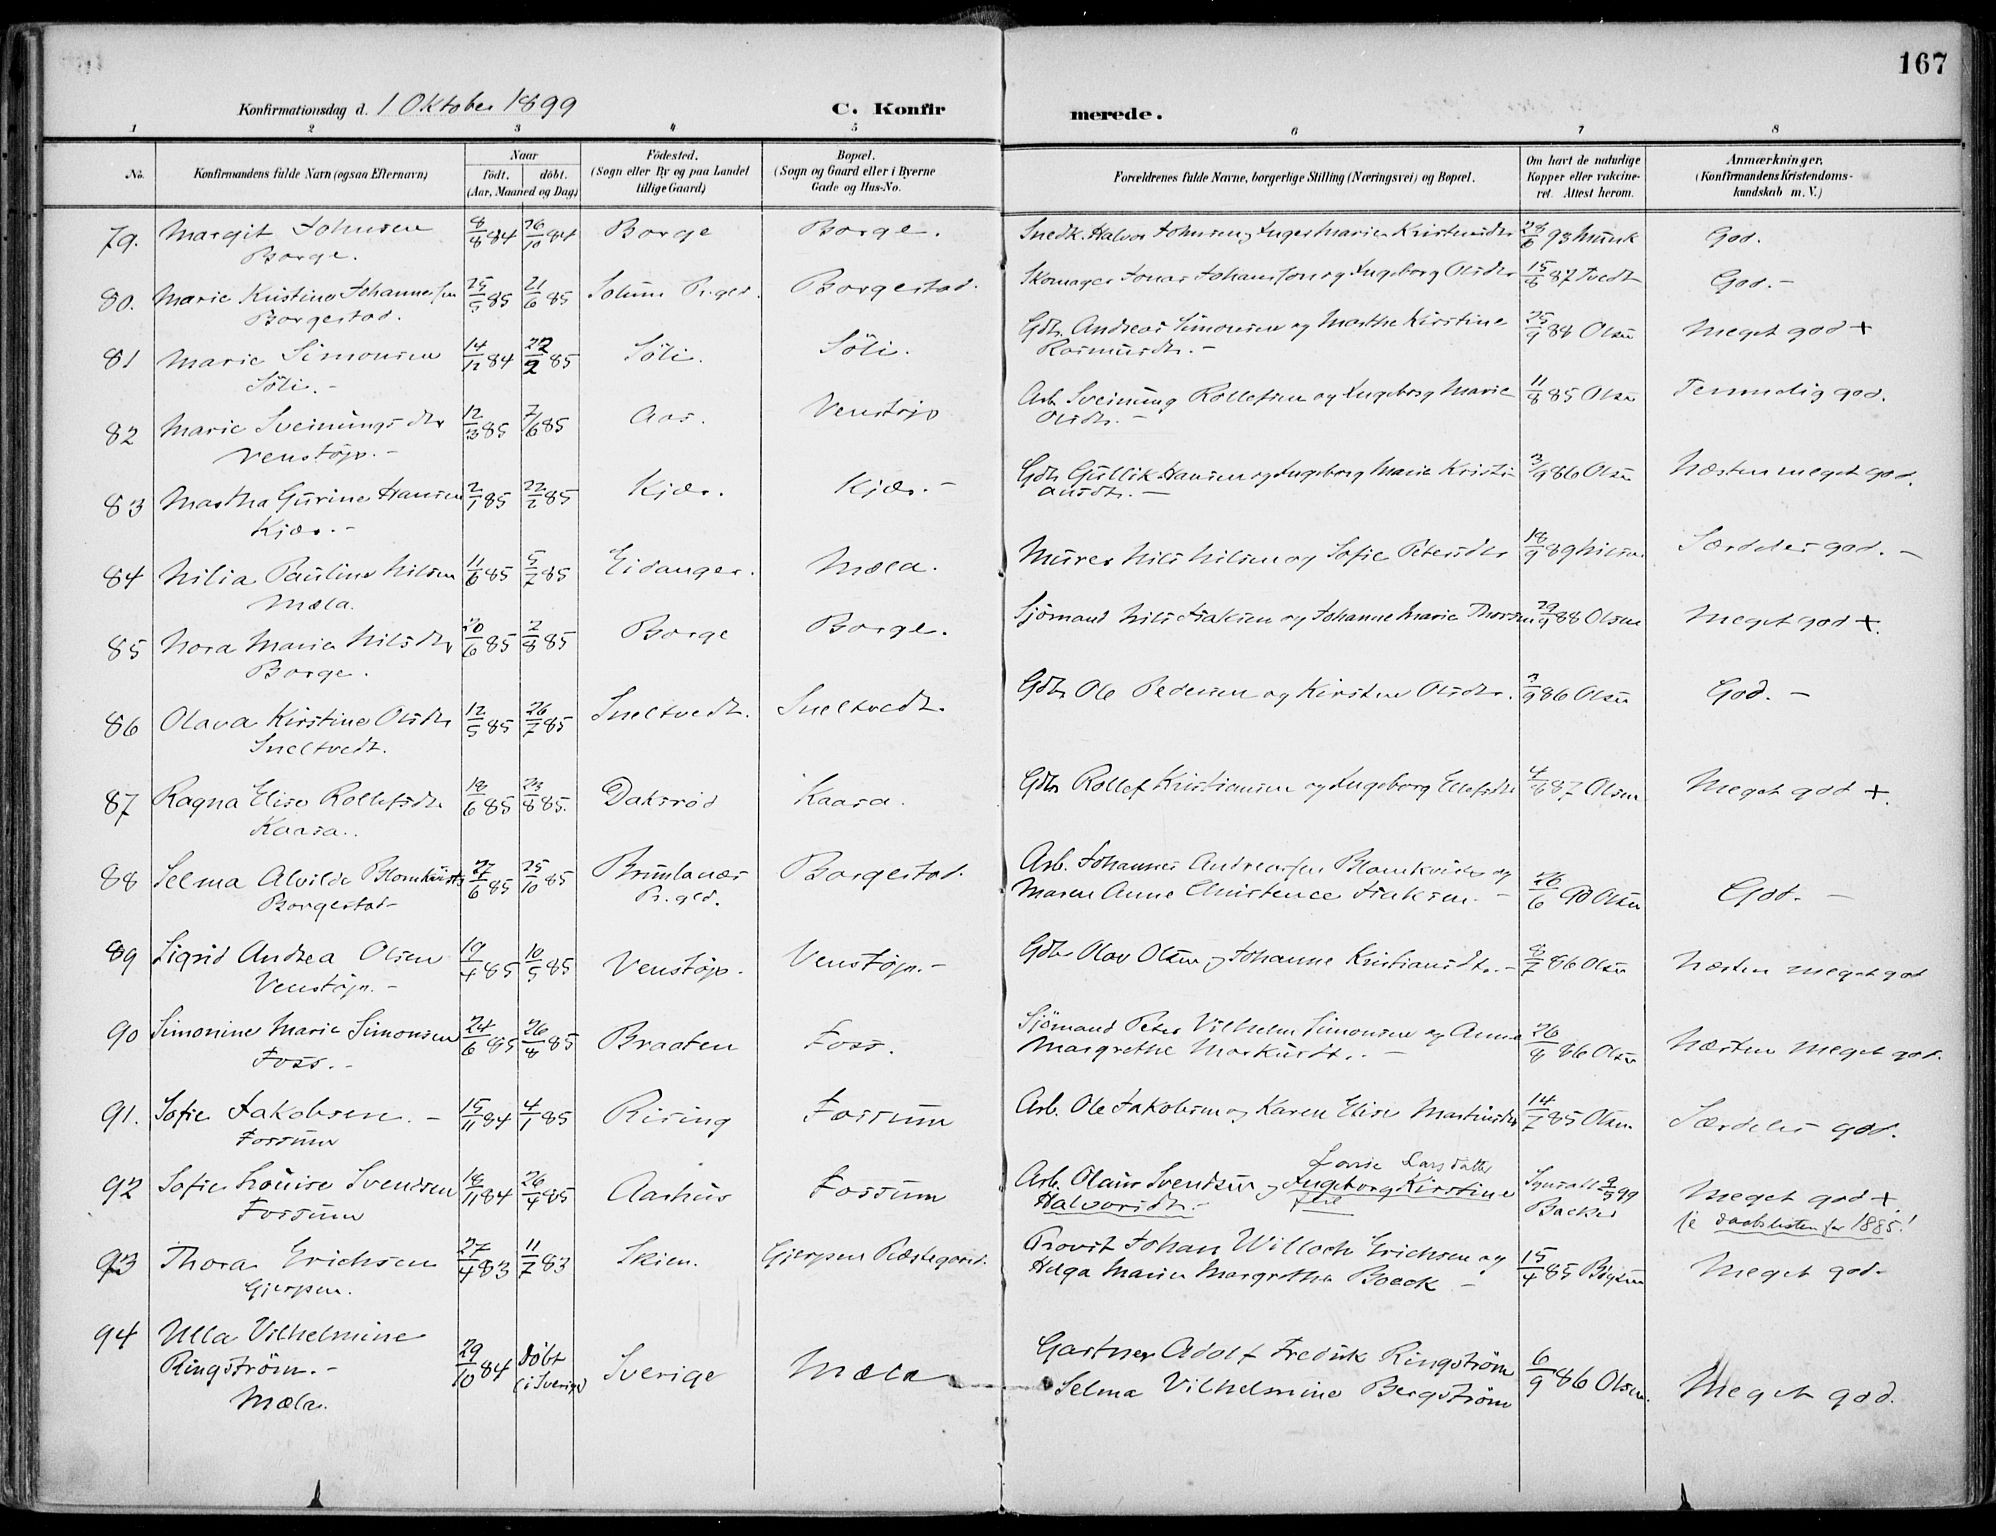 167
Konfirmationsdag d. 1 Oktober 1899
C. Konfirmerede.
1 2 3 4 5 6 7 8
No.
Konfirmandens fulde Navn (ogsaa Efternavn)
Naar
födt. döbt.
(Aar, Maaned og Dag)
Födested.
(Sogn eller By og paa Landet
tillige Gaard)
Bopæl.
(Sogn og Gaard eller i Byerne
Gade og Hus-No.
Forældrenes fulde Navne, borgerlige Stilling (Næringsvei) og Bopæl.
Om havt de naturlige
Kopper eller vaccine-
ret. Attest herom.
Anmærkninger.
(Konfirmandens Kristendoms-
kundskab m. V.)
79. Margit Johnsen 8/8 84 26/10 84 Borge Borge. Snedk. Halvor Johnsen og Inger Marie Kristensdtr 28/6 93 Munk God.
Borge.
80. Marie Kristine Johannesen 25/3 85 21/6 85 Solum Pr.gld. Borgestad. Skomager Jonas Johansson og Ingeborg Olsdtr 15/8 87 Tvedt God. -
Borgestad.
81 Marie Simonsen 14/12 84 22/2 85 Söli. Söli. Gdbr. Andreas Simonsen og Marthe Kirstine 25/9 88 Olsen Meget god +
Söli. - Rasmusdtr. -
82 Marie Sveinungsdtr 12/3 85 7/6 85 Aas. Venstöp Arb. Sveinung Rollefsen og Ingeborg Marie 11/8 85 Olsen Temmelig god.
Venstöp. - Olsdtr. -
83 Martha Gurine Hansen 2/1 85 22/2 85 Kjær. Kjær. - Gdbr. Gullik Hansen og Ingeborg Marie Kristi- 3/9 86 Olsen Næsten meget god.
Kjær. - ansdtr. -
84 Nilia Pauline Nilsen 11/6 85 5/7 85 Eidanger. Mæla. Murer Nils Nilsen og Sofie Petersdtr 18/9 89 Nilsen Særdeles god. -
Mæla.
85 Nora Marie Nilsdtr 20/6 85 2/8 85 Borge Borge. Sjömand Nils Isaksen og Johanne Marie Thorsen 29/9 88 Olsen Meget god +.
Borge.
86 Olava Kirstine Olsdtr 12/5 85 26/7 85 Sneltvedt. Sneltvedt. Gdbr Ole Pedersen og Kirsten Olsdtr. 3/9 86 Olsen God. -
Sneltvedt.
87 Ragna Elise Rollefsdtr 18/6 85 23/8 85. Daksröd Kaasa. Gdbr Rollef Kristiansen og Ingeborg Ellefsdtr 4/8 87 Olsen Meget god +.
Kaasa.
88 Selma Alvilde Blomkvist 27/6 85 25/10 85 Brunlanæs Borgestad. Arb. Johannes Andreassen Blomkvist og
Borgestad - Pr.gld. Maren Anne Christence Isaksen. - 26/6 90 Olsen God. -
89 Sigrid Andrea Olsen 19/4 85 10/5 85 Venstöp. Venstöp. - Gdbr Olav Olsen og Johanne Kristiansdtr. - 8/7 86 Olsen Næsten meget god
Venstöp. -
90 Simonine Marie Simonsen 24/6 85 26/8 85 Braaten Foss. Sjömand Peter Vilhelm Simonsen og Anna 26/8 86 Olsen Næsten meget god.
Foss. - Margrethe Markusdt.. -
91. Sofie Jakobsen. - 15/11 84 4/1 85 Rising Fossum Arb. Ole Jakobsen og Karen Elise Martinsdtr 14/7 85 Olsen. Særdeles god.
Fossum
Lovise Larsdatter
92 Sofie Louise Svendsen 18/11 84 26/4 85 Aarhus Fossum Arb. Olaus Svendsen og Ingeborg Kirstine Synsatt 9/5 99 Meget god +
Fossum Halvorsdtr. - feil Backer se daabslisten for 1885!
93 Thora Erichsen 27/4 83 11/7 83 Skien. Gjerpen Præstegård. Provst Johan Willoch Erichsen og 15/4 85 Meget god -
Gjerpen. Helga Marie Margrethe Boeck -
94 Ulla Vilhelmine
Ringström. - 29/10 84 Döbt Sverige Mæla Gartner Adolf Fredrik Ringström 6/9 86 Olsen. Meget god.
Mæla. (i Sverige) Selma Vilhelmine Bergström